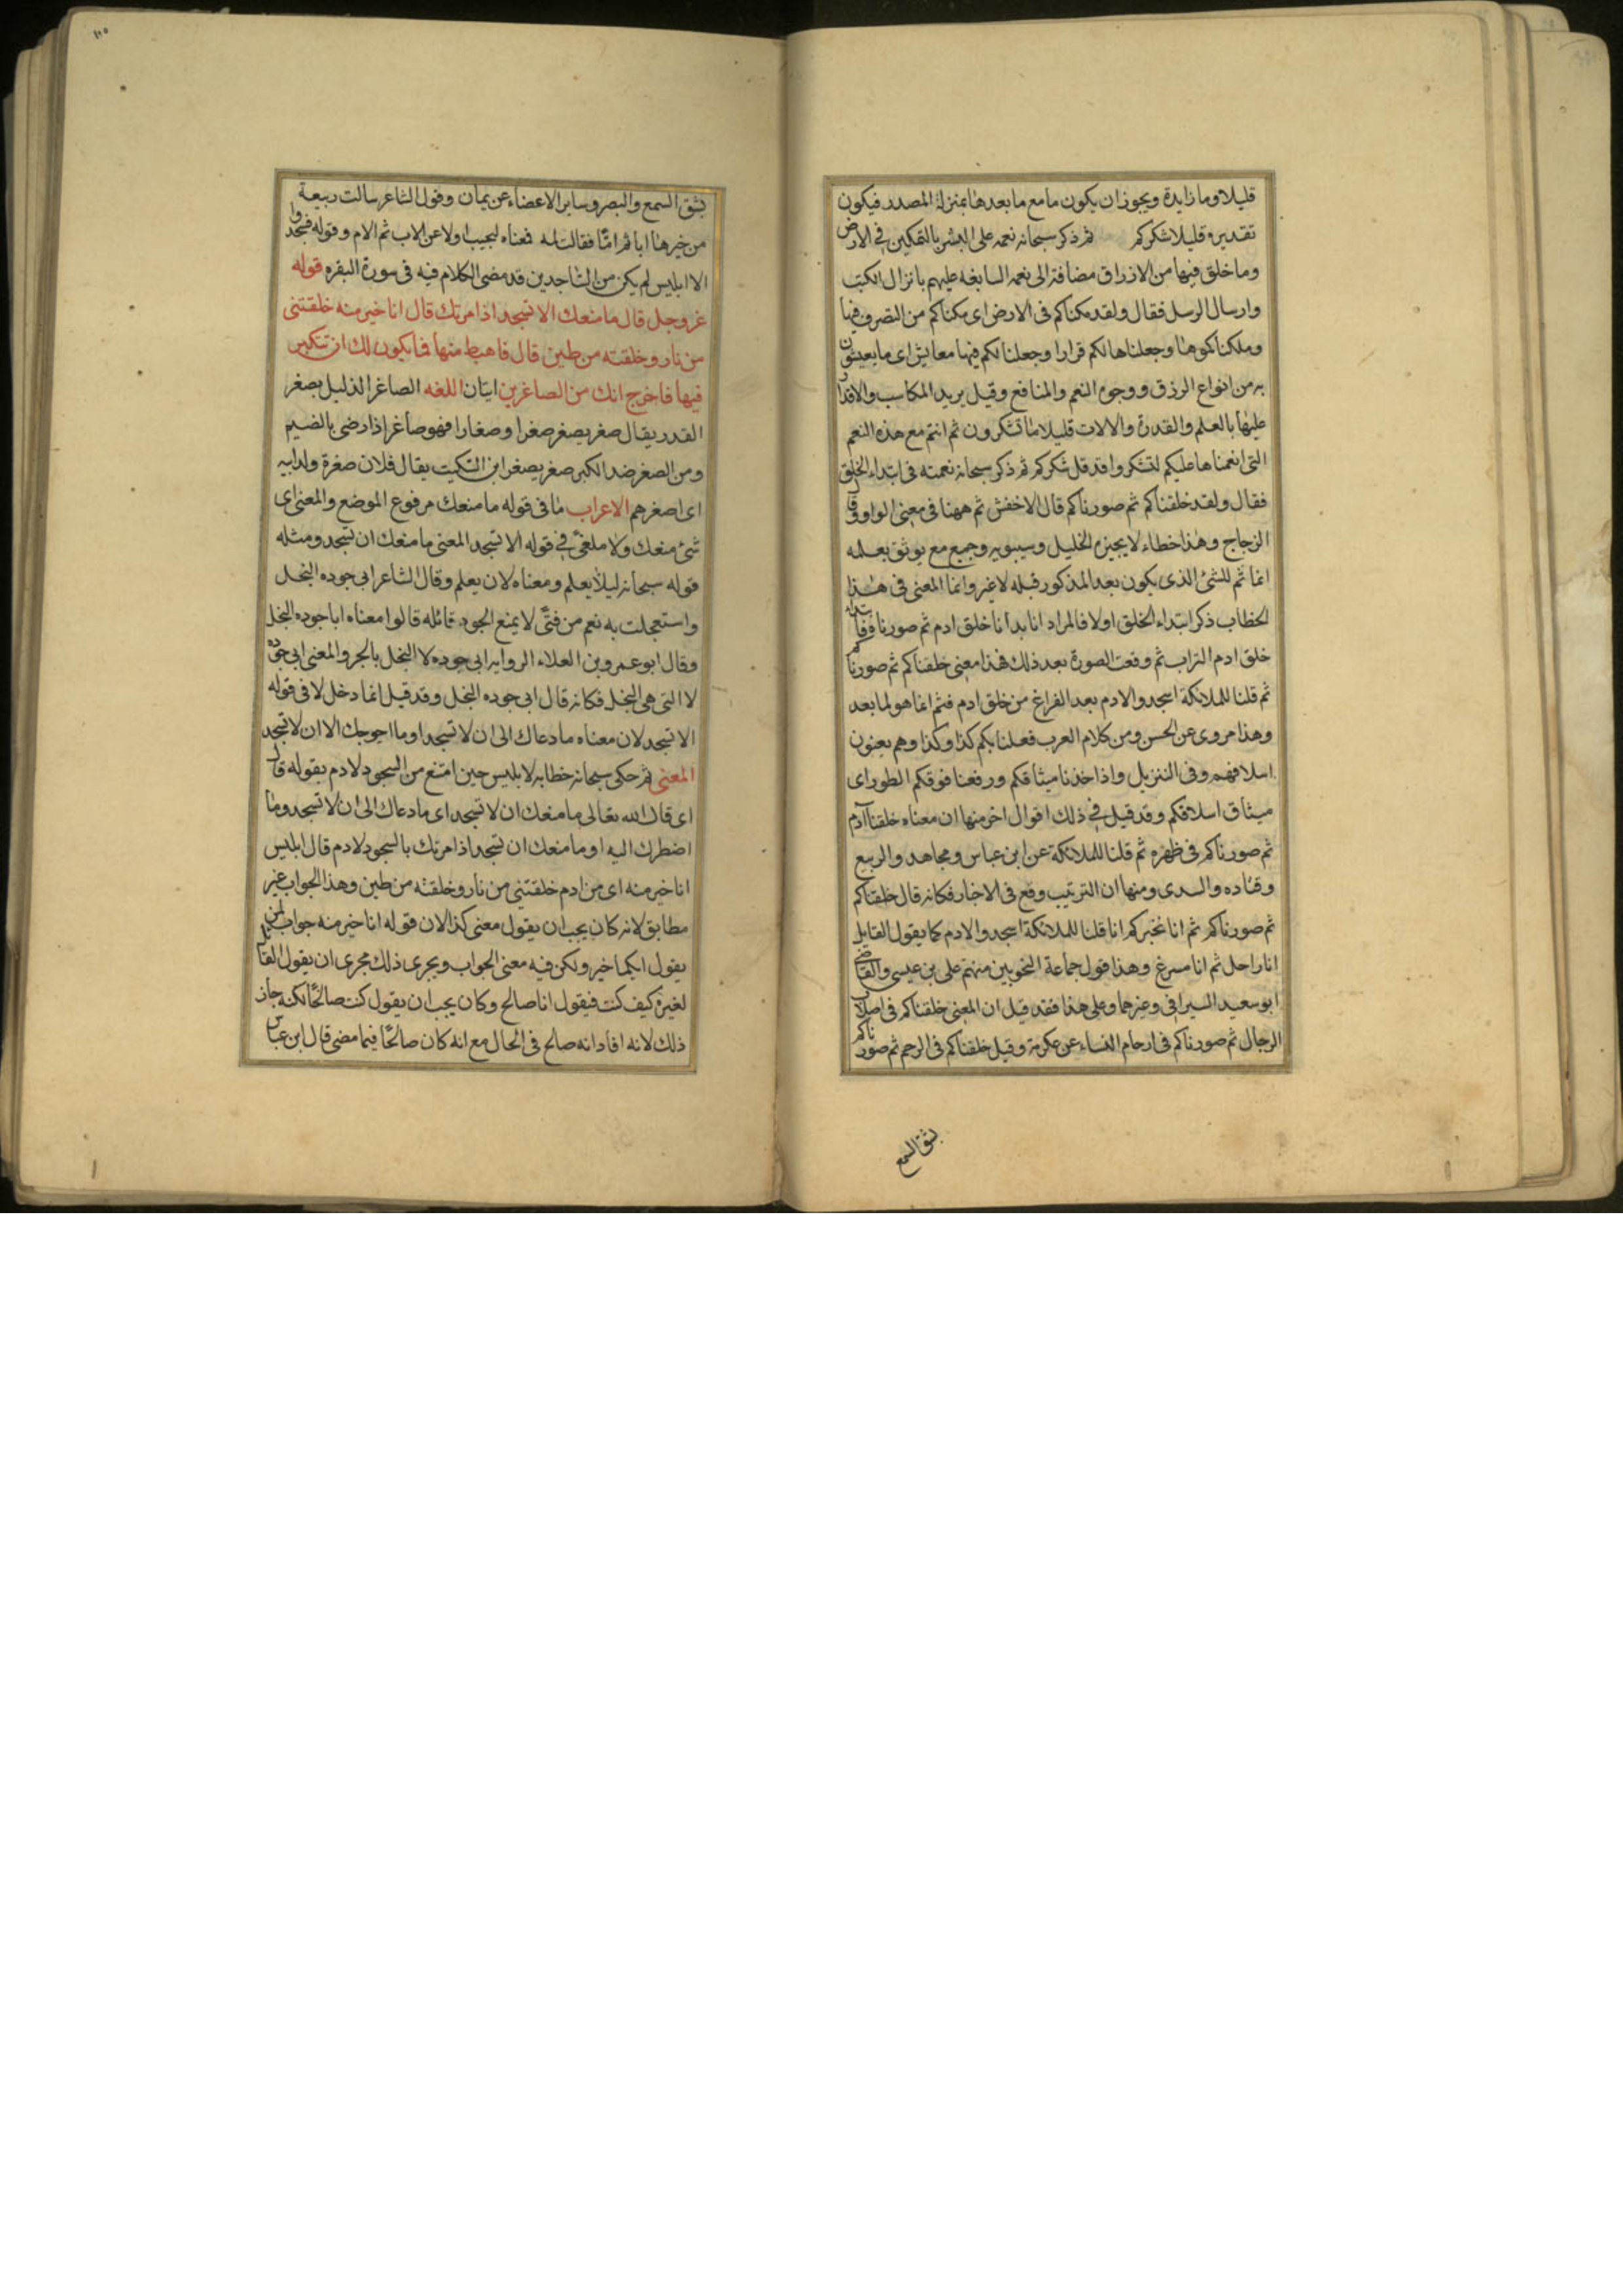 قليلا وما زايدة ويجوز ان يكون ما مع ما بعدها بمنزلة المصدر فيكون
تقديره قليلا شكركم ثم ذكر سبحانه نعمه على البشر بالتمكين في الارض
وما خلق فيها من الارزاق مضافة الى نعمه السابغه عليهم بانزال الكتب
وارسال الرسل فقال ولقد مكناكم فى الارض اى مكناكم من التصرف فيها
وملكناكموها وجعلناها لكم قرارا وجعلنا لكم فيها معايش اى ما يعيشون
به من انواع الرزق ووجوه النعم والمنافع وقيل يريد المكاسب والاقدار
عليها بالعلم والقدرة والالات قليلا ما تشكرون ثم انتم مع هذه النعم
التى انعمناها عليكم لتشكروا قد قل شكركم ثم ذكر سبحانه نعمته فى ابتداء الخلق
فقال ولقد خلقناكم ثم صورناكم قال الاخفش ثم ههنا فى معنى الواو وقال
الزجاج وهذا خطاء لا يجيزه الخليل وسيبويه وجميع مع يوثق بعلمه
انما ثم للشئ الذى يكون بعد المذكور قبله لا غير وانما المعنى فى هذا
الخطاب ذكر ابتداء الخلق اولا فالمراد انا بدأنا خلق ادم ثم صورنا فابتداء
خلق ادم التراب ثم وقعت الصورة بعد ذلك فهذا معنى خلقناكم ثم صورناكم
ثم قلنا للملائكة اسجدوا لادم بعد الفراغ من خلق ادم فثم انما هو لما بعد
وهذا مروى عن الحسن ومن كلام العرب فعلنا بكم كذا وكذا وهم يعنون
اسلافهم وفى التنزيل واذ اخذنا ميثاقكم ورفعنا فوقكم الطور اى
ميثاق اسلافكم وقد قيل في ذلك اقوال اخر منها ان معناه خلقنا آدم
ثم صورناكم فى ظهره ثم قلنا للملائكة عن ابن عباس ومجاهد والربيع
وقتاده والسدى ومنها ان الترتيب وقع فى الاخبار فكانه قال خلقناكم
ثم صورناكم ثم انا نخبركم انا قلنا للملائكة اسجدوا لادم كما يقول القايل
انا راحل ثم انا مسرع وهذا قول جماعة النحويين منهم على بن عيسى والقاضى
ابو سعيد السيرافى وغيرهما وعلى هذا فقد قيل ان المعنى خلقناكم فى اصلاب
الرجال ثم صورناكم فى ارحام النساء عن عكرمة وقيل خلقناكم فى الرحم ثم صورناكم
بشق السمع
١١٥
بشق السمع والبصر وساير الاعضاء عن يمان وقول الشاعر سالت ربيعة
من خيرها ابا ثم امّا فقالت لمه فمعناه لتجيب اولا عن الاب ثم الام وقوله فسجدوا
الا ابليس لم يكن من الساجدين قد مضى الكلام فيه فى سورة البقره قوله
عز وجل قال ما منعك الا تسجد اذ امرتك قال انا خير منه خلقتنى
من نار وخلقته من طين قال فاهبط منها فما يكون لك ان تتكبر
فيها فاخرج انك من الصاغرين ايتان اللغه الصاغر الذليل بصغر
القدر يقال صغر يصغر صغرا وصغارا فهو صاغر اذا رضى بالضيم
ومن الصغر ضد الكبر صغر يصغر ابن السكيت يقال فلان صغرة ولد ابيه
اى اصغرهم الاعراب ما فى قوله ما منعك مرفوع الموضع والمعنى اى
شئ منعك ولا ملغى في قوله الا تسجد المعنى ما منعك ان تسجد ومثله
قوله سبحانه ليلا يعلم ومعناه لان يعلم وقال الشاعر ابى جوده البخل
واستعجلت به نعم من فتًى لا يمنع الجود قائله قالوا معناه ابا جوده البخل
وقال ابو عمرو بن العلاء الروايه ابى جوده لا البخل بالجر والمعنى ابى جوده
لا التى هى البخل فكانه قال ابى جوده البخل وقد قيل انما دخل لا فى قوله
الا تسجد لان معناه ما دعاك الى ان لا تسجد او ما احوجك الا ان لا تسجد
المعنى ثم حكى سبحانه خطابه لابليس حين امتنع من السجود لادم بقوله قال
اى قال الله تعالى ما منعك ان لا تسجد اى ما دعاك الى ان لا تسجد وما
اضطرك اليه او ما منعك ان تسجد اذ امرتك بالسجود لادم قال ابليس
انا خير منه اى من ادم خلقتنى من نار وخلقته من طين وهذا الجواب غير
مطابق لانه كان يجب ان يقول معنى كذا لان قوله انا خير منه جواب لمن
يقول ايكما خير ولكن فيه معنى الجواب ويجرى ذلك مجرى ان يقول القائل
لغيره كيف كنت فيقول انا صالح وكان يجب ان يقول كنت صالحًا لكنه جاز
ذلك لانه افاد انه صالح فى الحال مع انه كان صالحًا فيما مضى قال ابن عباس